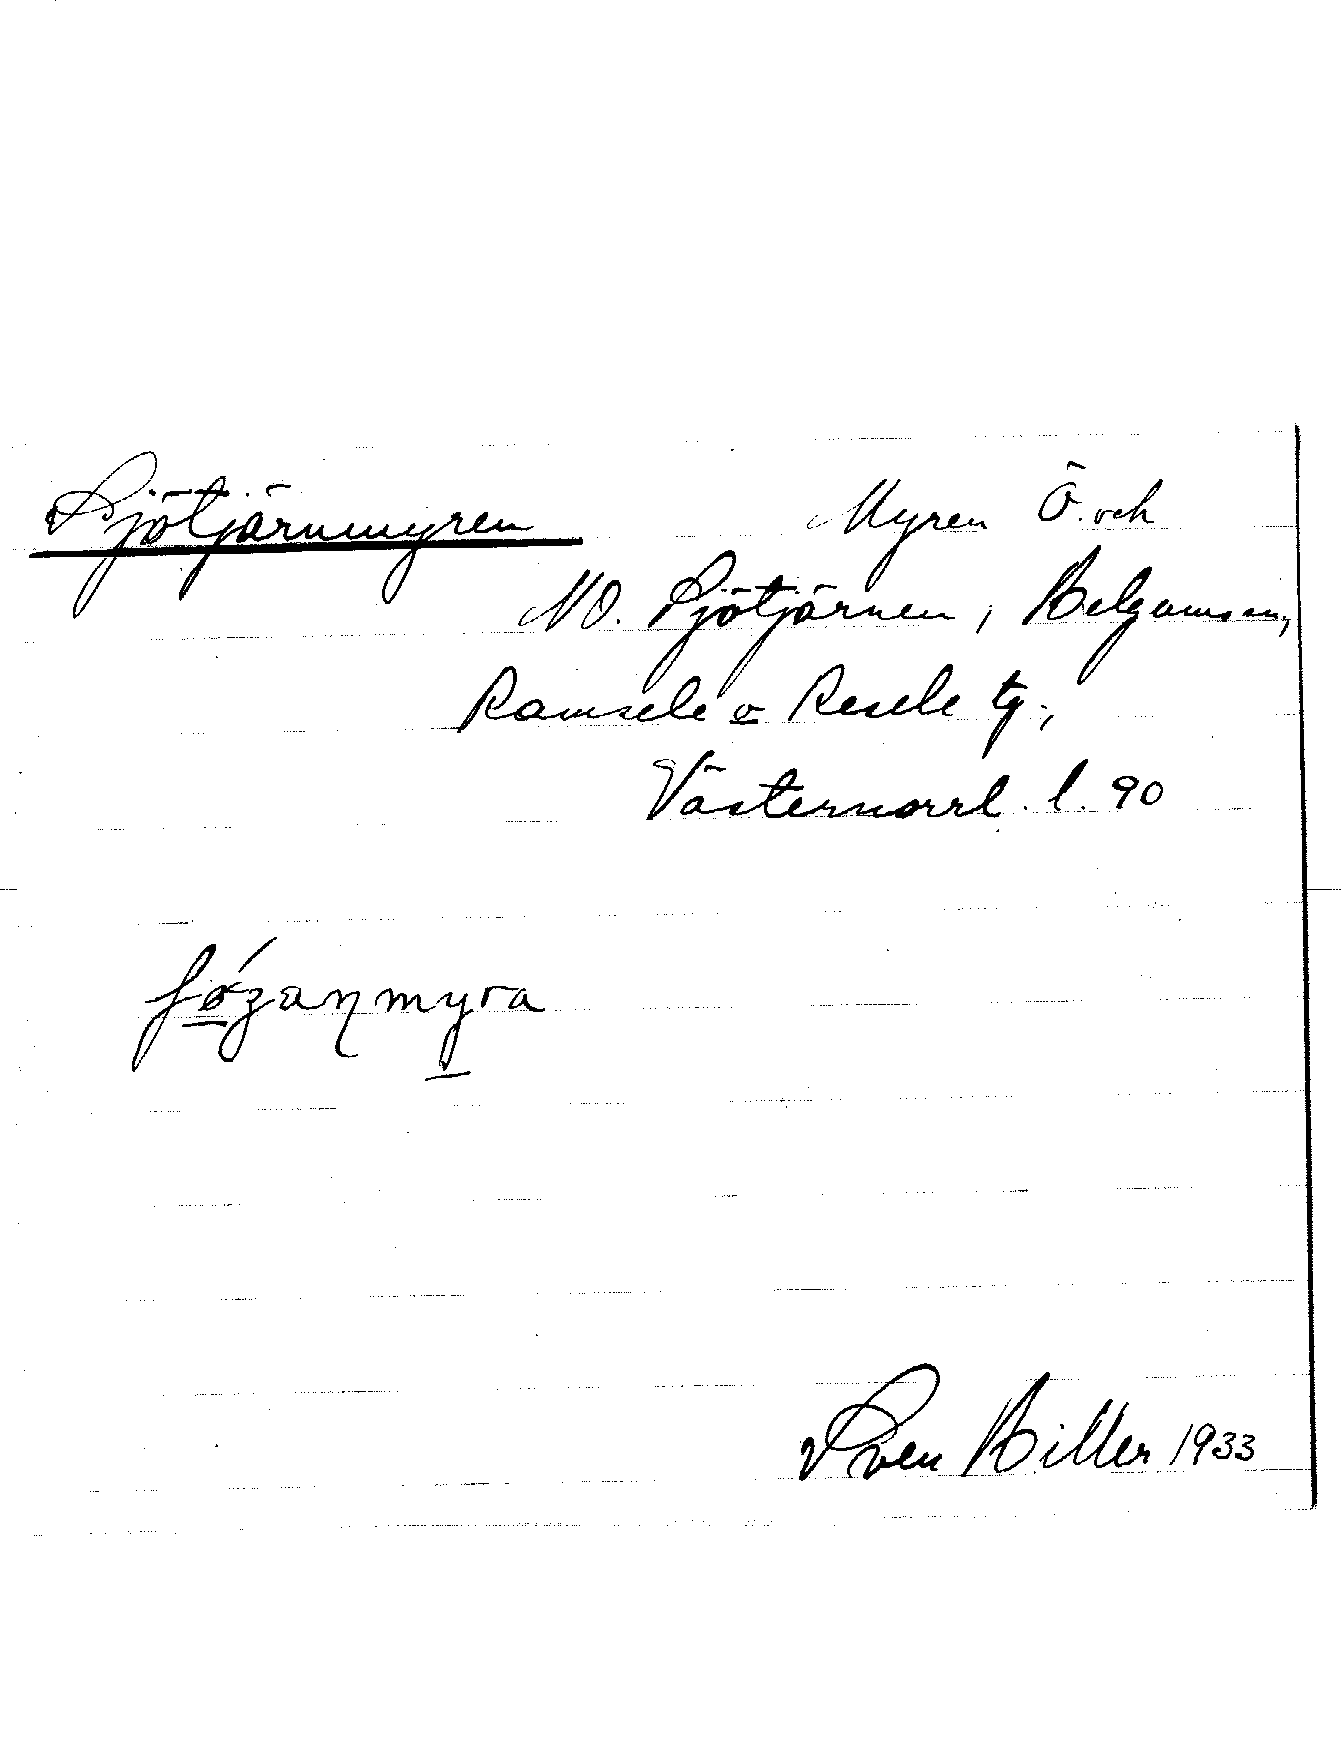 Sjötjärnmyren Myren Ö. och
NO. Sjötjärnen, Helgumsån,
Ramsele o Resele tg.,
Västernorrl. l. 90
Sven Hiller 1933